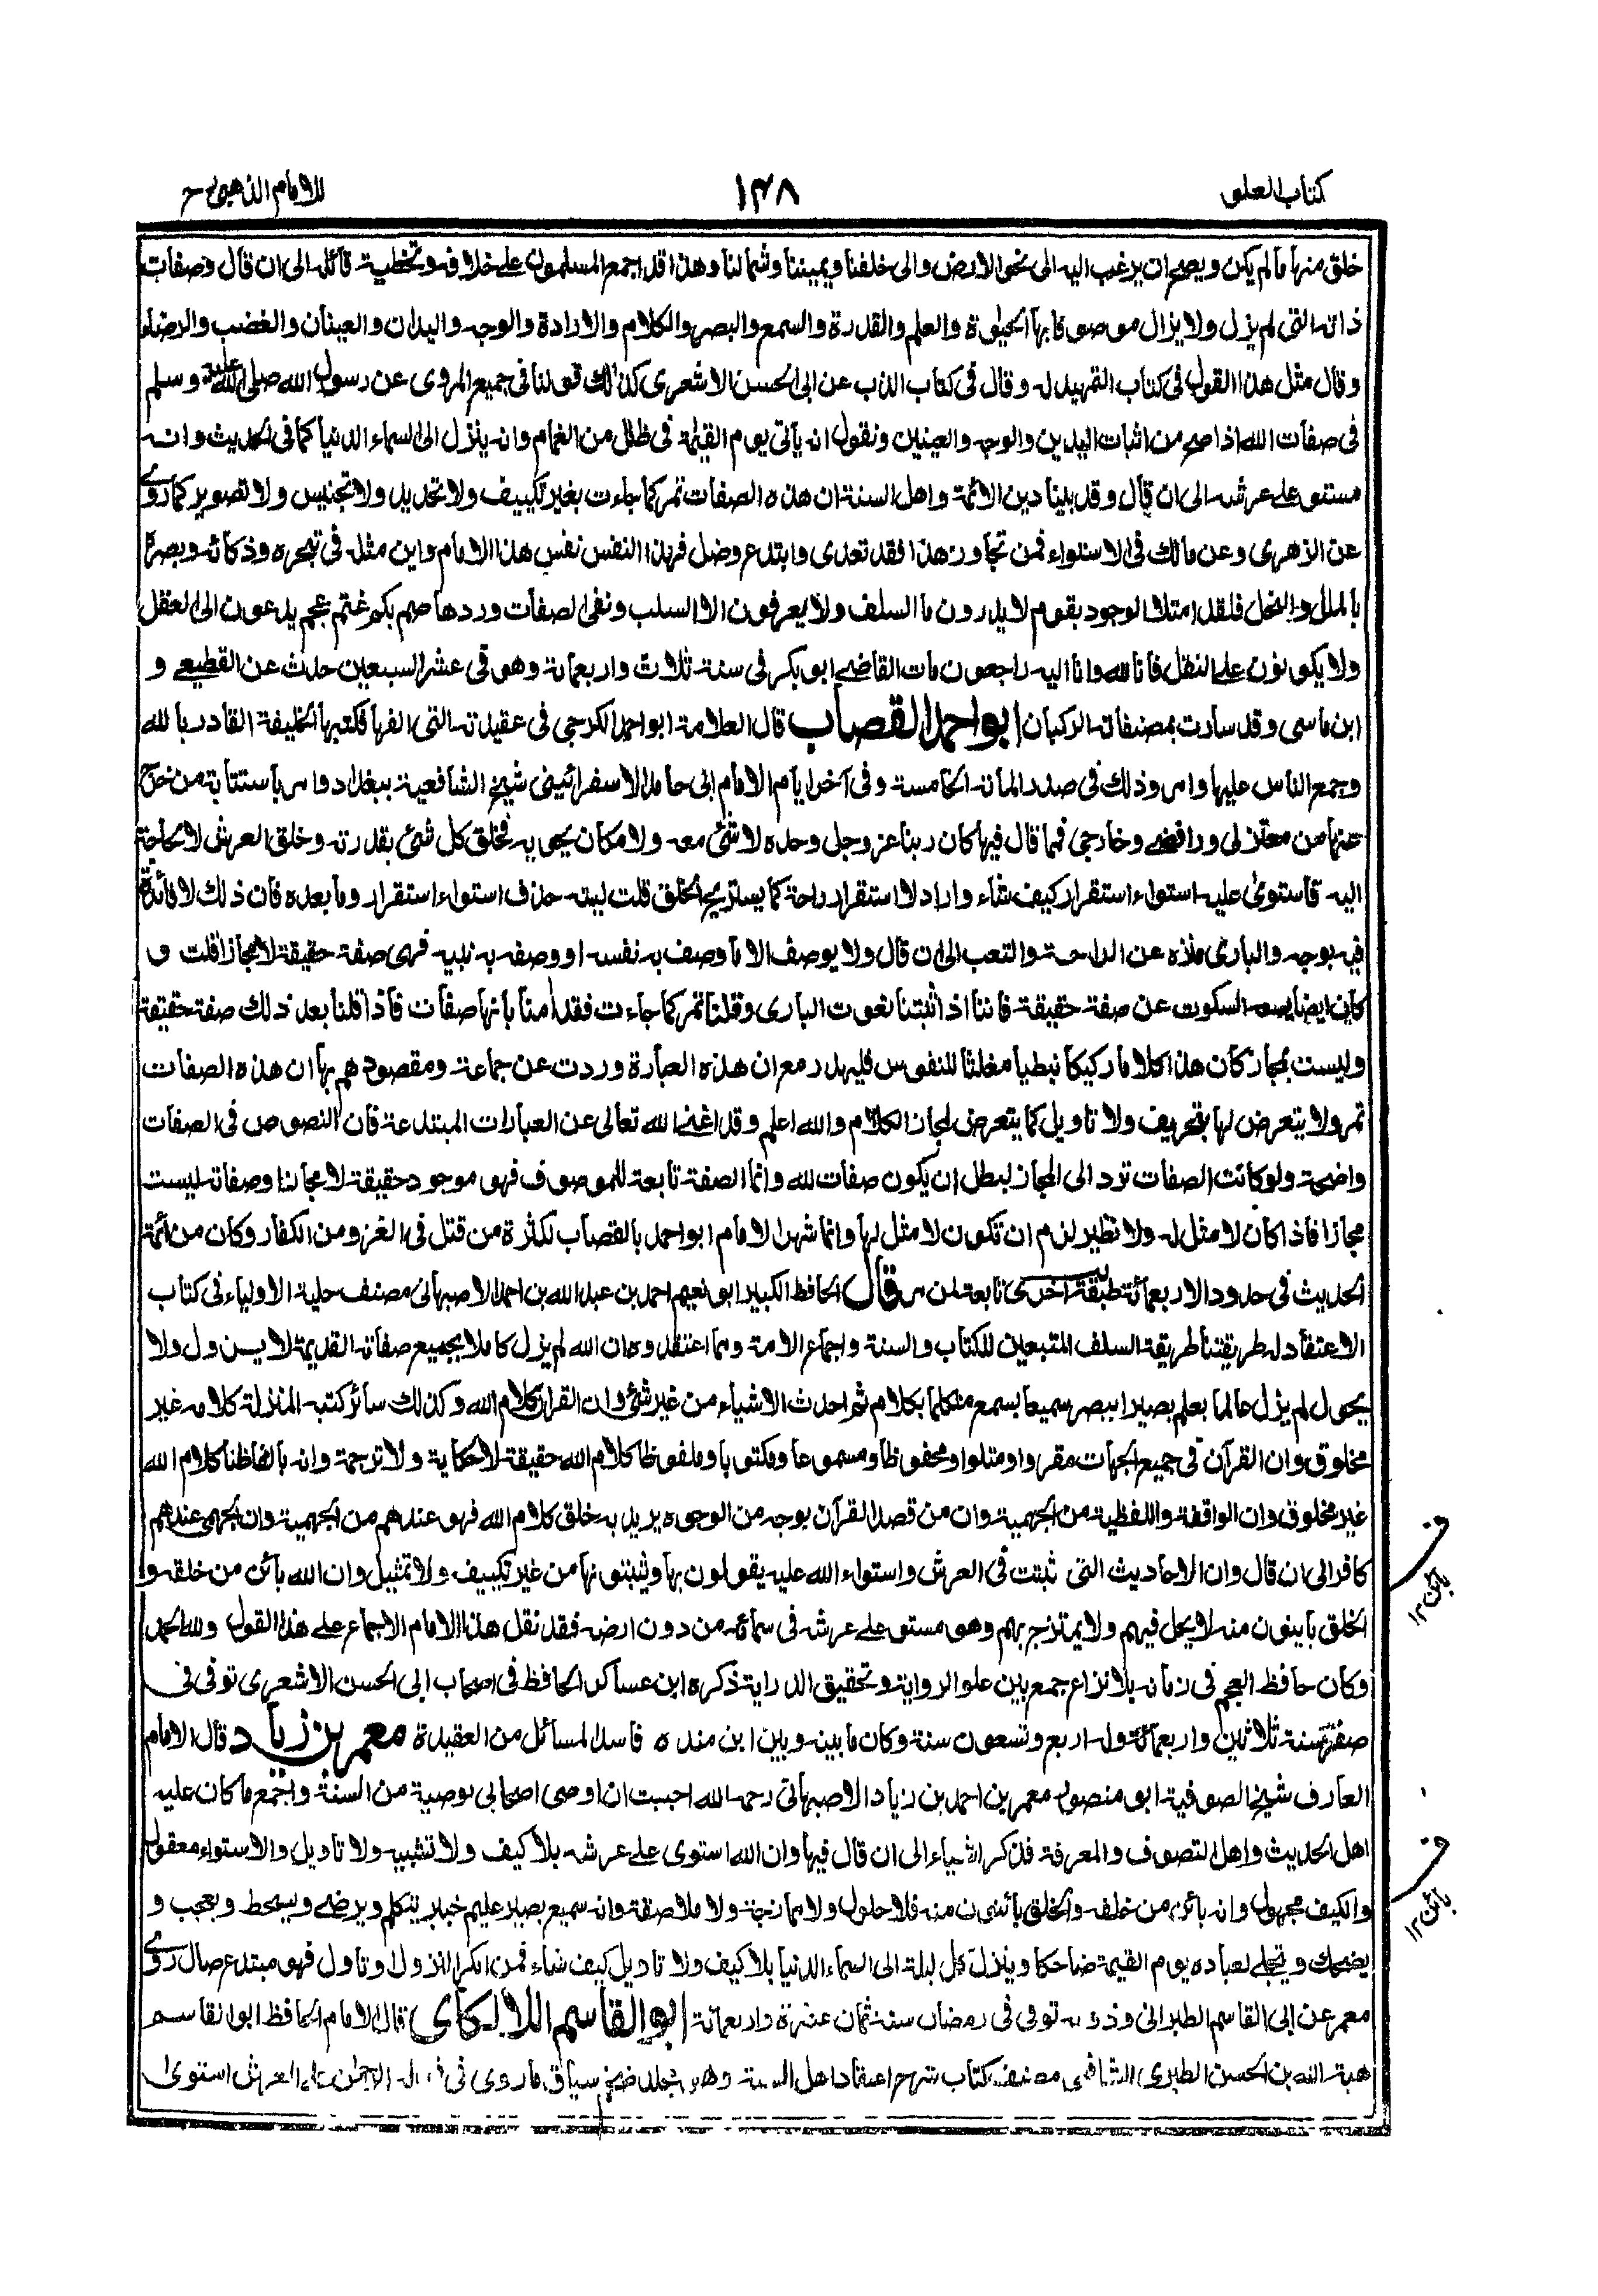 كتاب العلو
١٣٨
للامام الذهبى رح
خلق منها مالم يكن ويصح ان يرغب اليه الى نحو الارض والى خلفنا ويميننا وشمالنا وهذا قد اجمع المسلمون على خلافه وتخطية قائله الى ان قال وصفات
ذاته التى لم يزل ولا يزال موصوفا بها الحيوة والعلم والقدرة والسمع والبصر والكلام والارادة والوجه واليدان والعينان والغضب والرضاء
وقال مثل هذا القول فى كتاب التمهيد له وقال فى كتاب الذب عن ابى الحسن الاشعرى كذلك قولنا فى جميع المروى عن رسول الله صلى الله عليه وسلم
فى صفات الله اذا صح من اثبات اليدين والوجه والعينين ونقول انه ياتى يوم القيمة فى ظلل من الغمام وانه ينزل الى السماء الدنيا كما فى الحديث وانه
مستو على عرشه الى ان قال وقد بينا دين الائمة واهل السنة ان هذه الصفات تمر كما جاءت بغير تكييف ولا تحديد ولا تجنيس ولا تصوير كما روى
عن الزهرى وعن مالك فى الاستواء فمن تجاوز هذا فقد تعدى وابتدع وضل فهذا النفس نفس هذا الامام واين مثله فى تبحره وذكائه وبصره
بالملل والنحل فلقد امتلا الوجود بقوم لا يدرون ما السلف ولا يعرفون الا السلب ونفى الصفات وردها صم بكم غتم عجم يدعون الى العقل
ولا يكونون على النقل فانا لله وانا اليه راجعون مات القاضى ابو بكر فى سنة ثلاث واربعمائة وهو فى عشر السبعين حدث عن القطيعى و
ابن ماسى وقد سارت بمصنفاته الركبان ابو احمد القصاب قال العلامة ابو احمد الكرجى فى عقيدته التى الفها فكتبها الخليفة القادر بالله
وجمع الناس عليها وامر وذلك فى صدر المائة الخامسة وفى آخر ايام الامام ابى حامد الاسفرائينى شيخ الشافعية ببغداد وامر باستتابة من خرج
عنها من معتزلى ورافضى وخارجى فمما قال فيها كان ربنا عز وجل وحده لا شئ معه ولا مكان يحويه فخلق كل شئ بقدرته وخلق العرش لا لحاجة
اليه فاستوى عليه استواء استقرار كيف شاء واراد لا استقرار راحة كما يستريح الخلق قلت ليته حذف استواء استقرار وما بعده فان ذلك لا فائدة
فيه بوجه والبارى منزه عن الراحة والتعب الى ان قال ولا يوصف الا ما وصف به نفسه او وصفه به نبيه فهى صفة حقيقة لا مجازا قلت و
كان ايضا يسعه السكوت عن صفة حقيقة فاننا اذا اثبتنا نعوت البارى وقلنا تمر كما جاءت فقد امنا بانها صفات فاذا قلنا بعد ذلك صفة حقيقة
وليست بمجاز كان هذا كلاما ركيكا نبطيا مغلثا للنفوس فليهدر مع ان هذه العبارة وردت عن جماعة ومقصودهم بها ان هذه الصفات
تمر ولا يتعرض لها بتحريف ولا تاويل كما يتعرض لمجاز الكلام والله اعلم وقد اغنى الله تعالى عن العبارات المبتدعة فان النصوص فى الصفات
واضحة ولو كانت الصفات ترد الى المجاز لبطل ان يكون صفات لله وانما الصفة تابعة للموصوف فهو موجود حقيقة لا مجازا وصفاته ليست
مجازا فاذا كان لا مثل له ولا نظير لزم ان تكون لا مثل لها وانما شهر الامام ابو احمد بالقصاب لكثرة من قتل فى الغزو من الكفار وكان من ائمة
الحديث فى حدود الاربعمائة طبقة اخرى تابعة لمن مر قال الحافظ الكبير ابو نعيم احمد بن عبد الله بن احمد الاصبهانى مصنف حلية الاولياء فى كتاب
الاعتقاد له طريقتنا طريقة السلف المتبعين للكتاب والسنة واجماع الامة ومما اعتقدوه ان الله لم يزل كاملا بجميع صفاته القديمة لا يزول ولا
يحول لم يزل عالما بعلم بصيرا ببصر سميعا بسمع متكلما بكلام ثم احدث الاشياء من غير شئ وان القرآن كلام الله وكذلك سائر كتبه المنزلة كلامه غير
مخلوق وان القرآن فى جميع الجهات مقروا ومتلوا ومحفوظا ومسموعا ومكتوبا وملفوظا كلام الله حقيقة لا حكاية ولا ترجمة وانه بالفاظنا كلام الله
غير مخلوق وان الواقفة واللفظية من الجهمية وان من قصد القرآن بوجه من الوجوه يريد به خلق كلام الله فهو عندهم من الجهمية وان الجهمى عندهم
كافر الى ان قال وان الاحاديث التى ثبتت فى العرش واستواء الله عليه يقولون بها ويثبتونها من غير تكييف ولا تمثيل وان الله بائن من خلقه و
الخلق باينون منه لا يحل فيهم ولا يمتزج بهم وهو مستو على عرشه فى سمائه من دون ارضه فقد نقل هذا الامام الاجماع على هذا القول ولله الحمد
وكان حافظ العجم فى زمانه بلا نزاع جمع بين علو الرواية وتحقيق الدراية ذكره ابن عساكر الحافظ فى اصحاب ابى الحسن الاشعرى توفى فى
صفر سنة ثلاثين واربعمائة وله اربع وتسعون سنة وكان ما بينه وبين ابن منده فاسد المسائل من العقيدة معمر بن زياد قال الامام
العارف شيخ الصوفية ابو منصور معمر بن احمد بن زياد الاصبهانى رحمه الله احببت ان اوصى اصحابى بوصية من السنة واجمع ما كان عليه
اهل الحديث واهل التصوف والمعرفة فذكر اشياء الى ان قال فيها وان الله استوى على عرشه بلا كيف ولا تشبيه ولا تاويل والاستواء معقول
والكيف مجهول وانه بائن من خلقه والخلق بائنون منه فلا حلول ولا ممازجة ولا ملاصقة وانه سميع بصير عليم خبير يتكلم ويرضى ويسخط ويعجب و
يضحك ويتجلى لعباده يوم القيمة ضاحكا وينزل كل ليلة الى السماء الدنيا بلا كيف ولا تاويل كيف شاء فمن انكر النزول او تاول فهو مبتدع ضال روى
معمر عن ابى القاسم الطبرانى وذويه توفى فى رمضان سنة ثمان عشرة واربعمائة ابو القاسم اللالكائى قال الامام الحافظ ابو القاسم
هبة الله بن الحسن الطبرى الشافعى مصنف كتاب شرح اعتقاد اهل السنة وهو مجلد ضخم سياق ما روى فى قوله الرحمن على العرش استوى
بائن ١٢
بائن ١٢